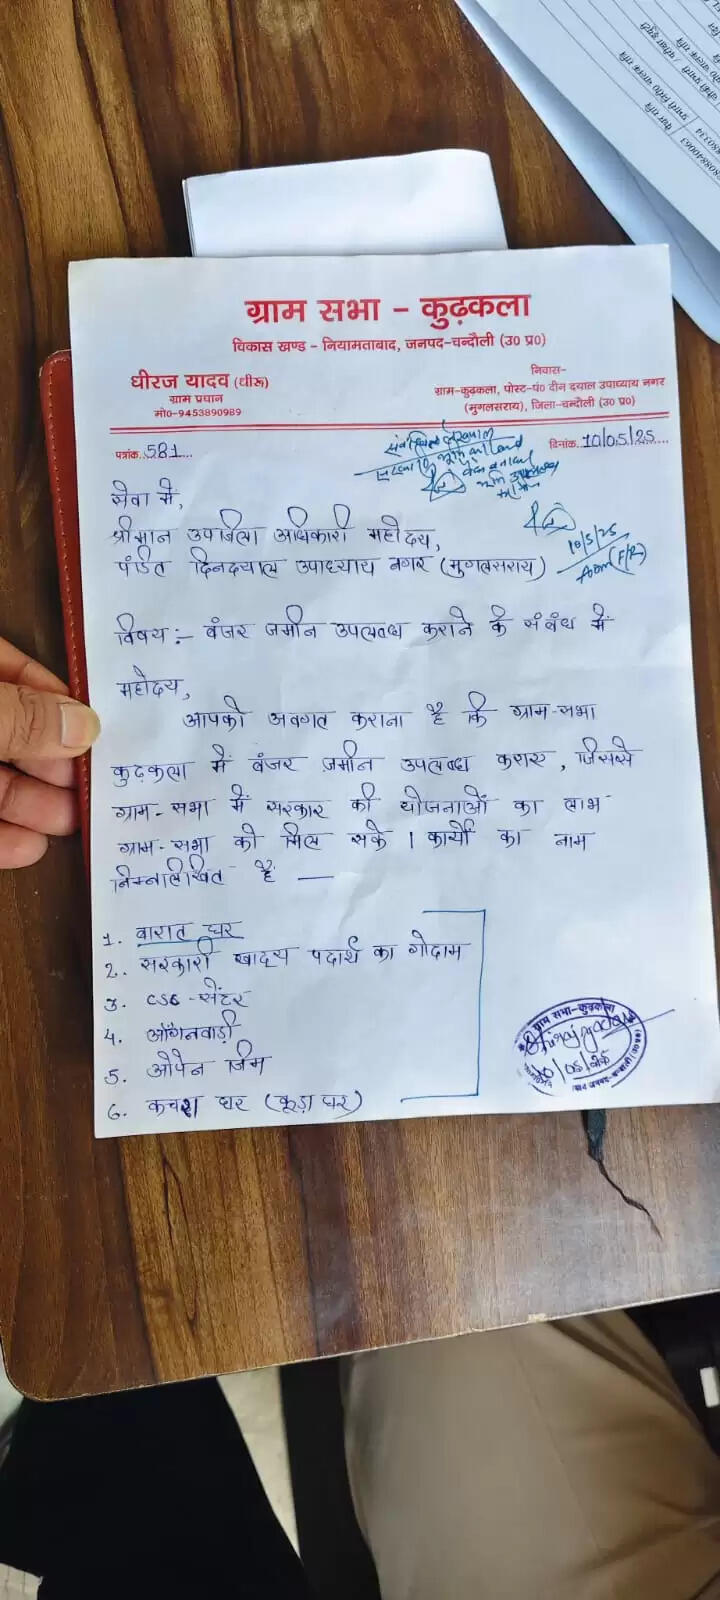 ग्राम सभा - कुढ़कला
विकास खण्ड - नियामताबाद, जनपद-चन्दौली (उ0 प्र0)
धीरज यादव (धीरू)
ग्राम प्रधान
मो0-9453890989
निवास-
ग्राम-कुढ़कला, पोस्ट-पं0 दीन दयाल उपाध्याय नगर
(मुगलसराय), जिला-चन्दौली (उ0 प्र0)
पत्रांक. 581...
दिनांक. 10/05/25....
सेवा में,
श्रीमान उपजिला अधिकारी महोदय,
पंडित दिनदयाल उपाध्याय नगर (मुगलसराय)
10/5/25
विषय :- बंजर जमीन उपलब्ध कराने के संबंध में
महोदय,
आपको अवगत कराना है कि ग्राम-सभा
कुढ़कला में बंजर ज़मीन उपलब्ध कराए, जिससे
ग्राम-सभा में सरकार की योजनाओं का लाभ
ग्राम-सभा को मिल सके । कार्यों का नाम
निम्नलिखित है —
1. बारात घर
2. सरकारी खाद्य पदार्थ का गोदाम
3. CSC-सेंटर
4. आँगनवाड़ी
5. ओपेन जिम
6. कचरा घर (कूड़ा घर)
ग्राम सभा-कुढ़कला